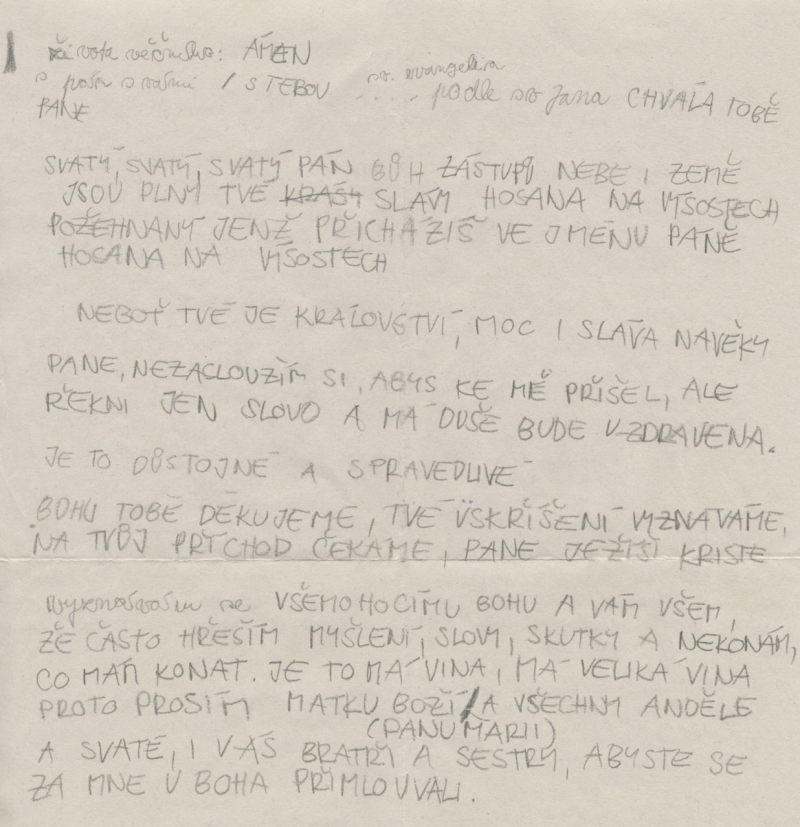 života věčného: AMEN
sv. evangelia
P pošn s vámi / S TEBOU .... podle sv Jana CHVÁLA TOBĚ
PANE
SVATÝ, SVATÝ, SVATÝ PÁN BŮH ZÁSTUPŮ NEBE I ZEMĚ
JSOU PLNY TVÉ KRÁSY SLÁVY HOSANA NA VÝSOSTECH
POŽEHNANÝ JENŽ PŘICHÁZÍŠ VE JMÉNU PÁNĚ
HOSANA NA VÝSOSTECH
NEBOŤ TVÉ JE KRÁLOVSTVÍ, MOC I SLÁVA NAVĚKY
PANE, NEZASLOUŽÍM SI, ABYS KE MĚ PŘIŠEL, ALE
ŘEKNI JEN SLOVO A MÁ DUŠE BUDE UZDRAVENA.
JE TO DŮSTOJNÉ A SPRAVEDLIVÉ
BOHU TOBĚ DĚKUJEME, TVÉ VSKŘÍŠENÍ VYZNÁVÁME,
NA TVŮJ PŘÍCHOD ČEKÁME, PANE JEŽÍŠI KRISTE
se VŠEMOHOCÍMU BOHU A VÁM VŠEM,
ŽE ČASTO HŘEŠÍM MYŠLENÍ, SLOVY, SKUTKY A NEKONÁM,
CO MÁM KONAT. JE TO MÁ VINA, MÁ VELIKÁ VINA
PROTO PROSÍM MATKU BOŽÍ / A VŠECHNY ANDĚLE
(PANU MARII)
A SVATÉ, I VÁS BRATŘI A SESTRY, ABYSTE SE
ZA MNE U BOHA PŘIMLOUVALI.